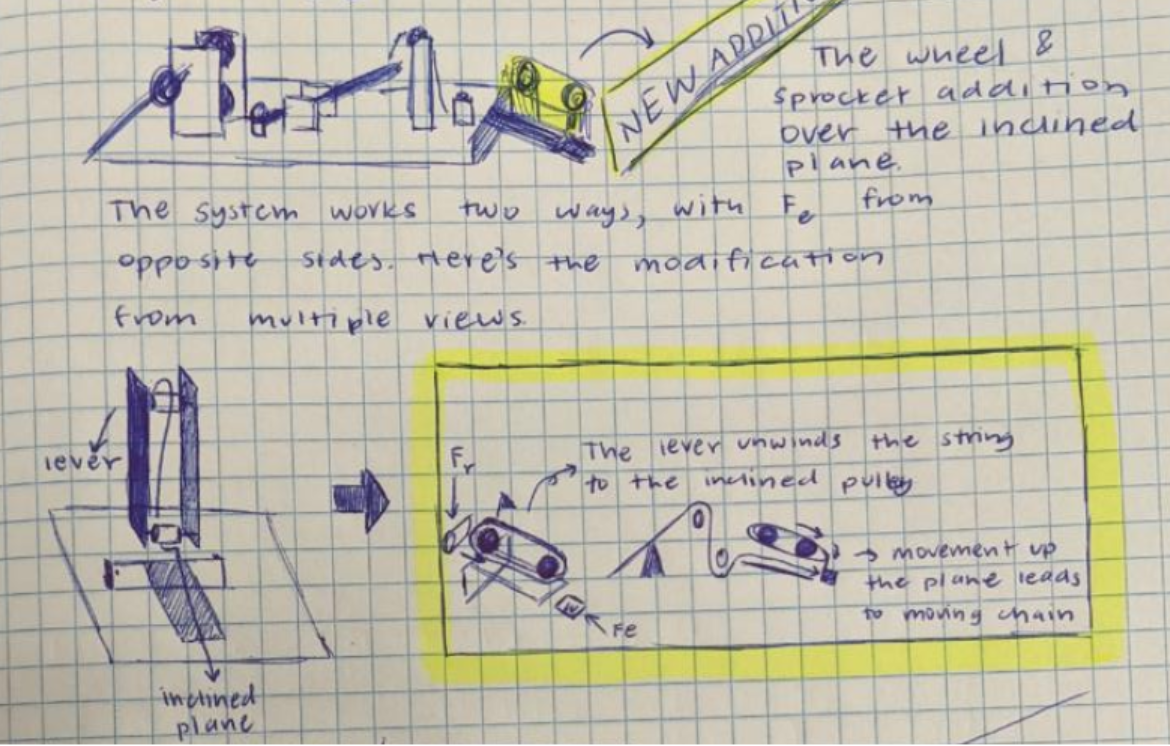 NEW ADDITI
The wheel &
sprocket addition
over the inclined
plane.
The system works two ways, with Fe from
opposite sides. Here's the modification
from multiple views.
lever
inclined
plane
Fr
The lever unwinds the string
to the inclined pulley
Fe
→ movement up
the plane leads
to moving chain